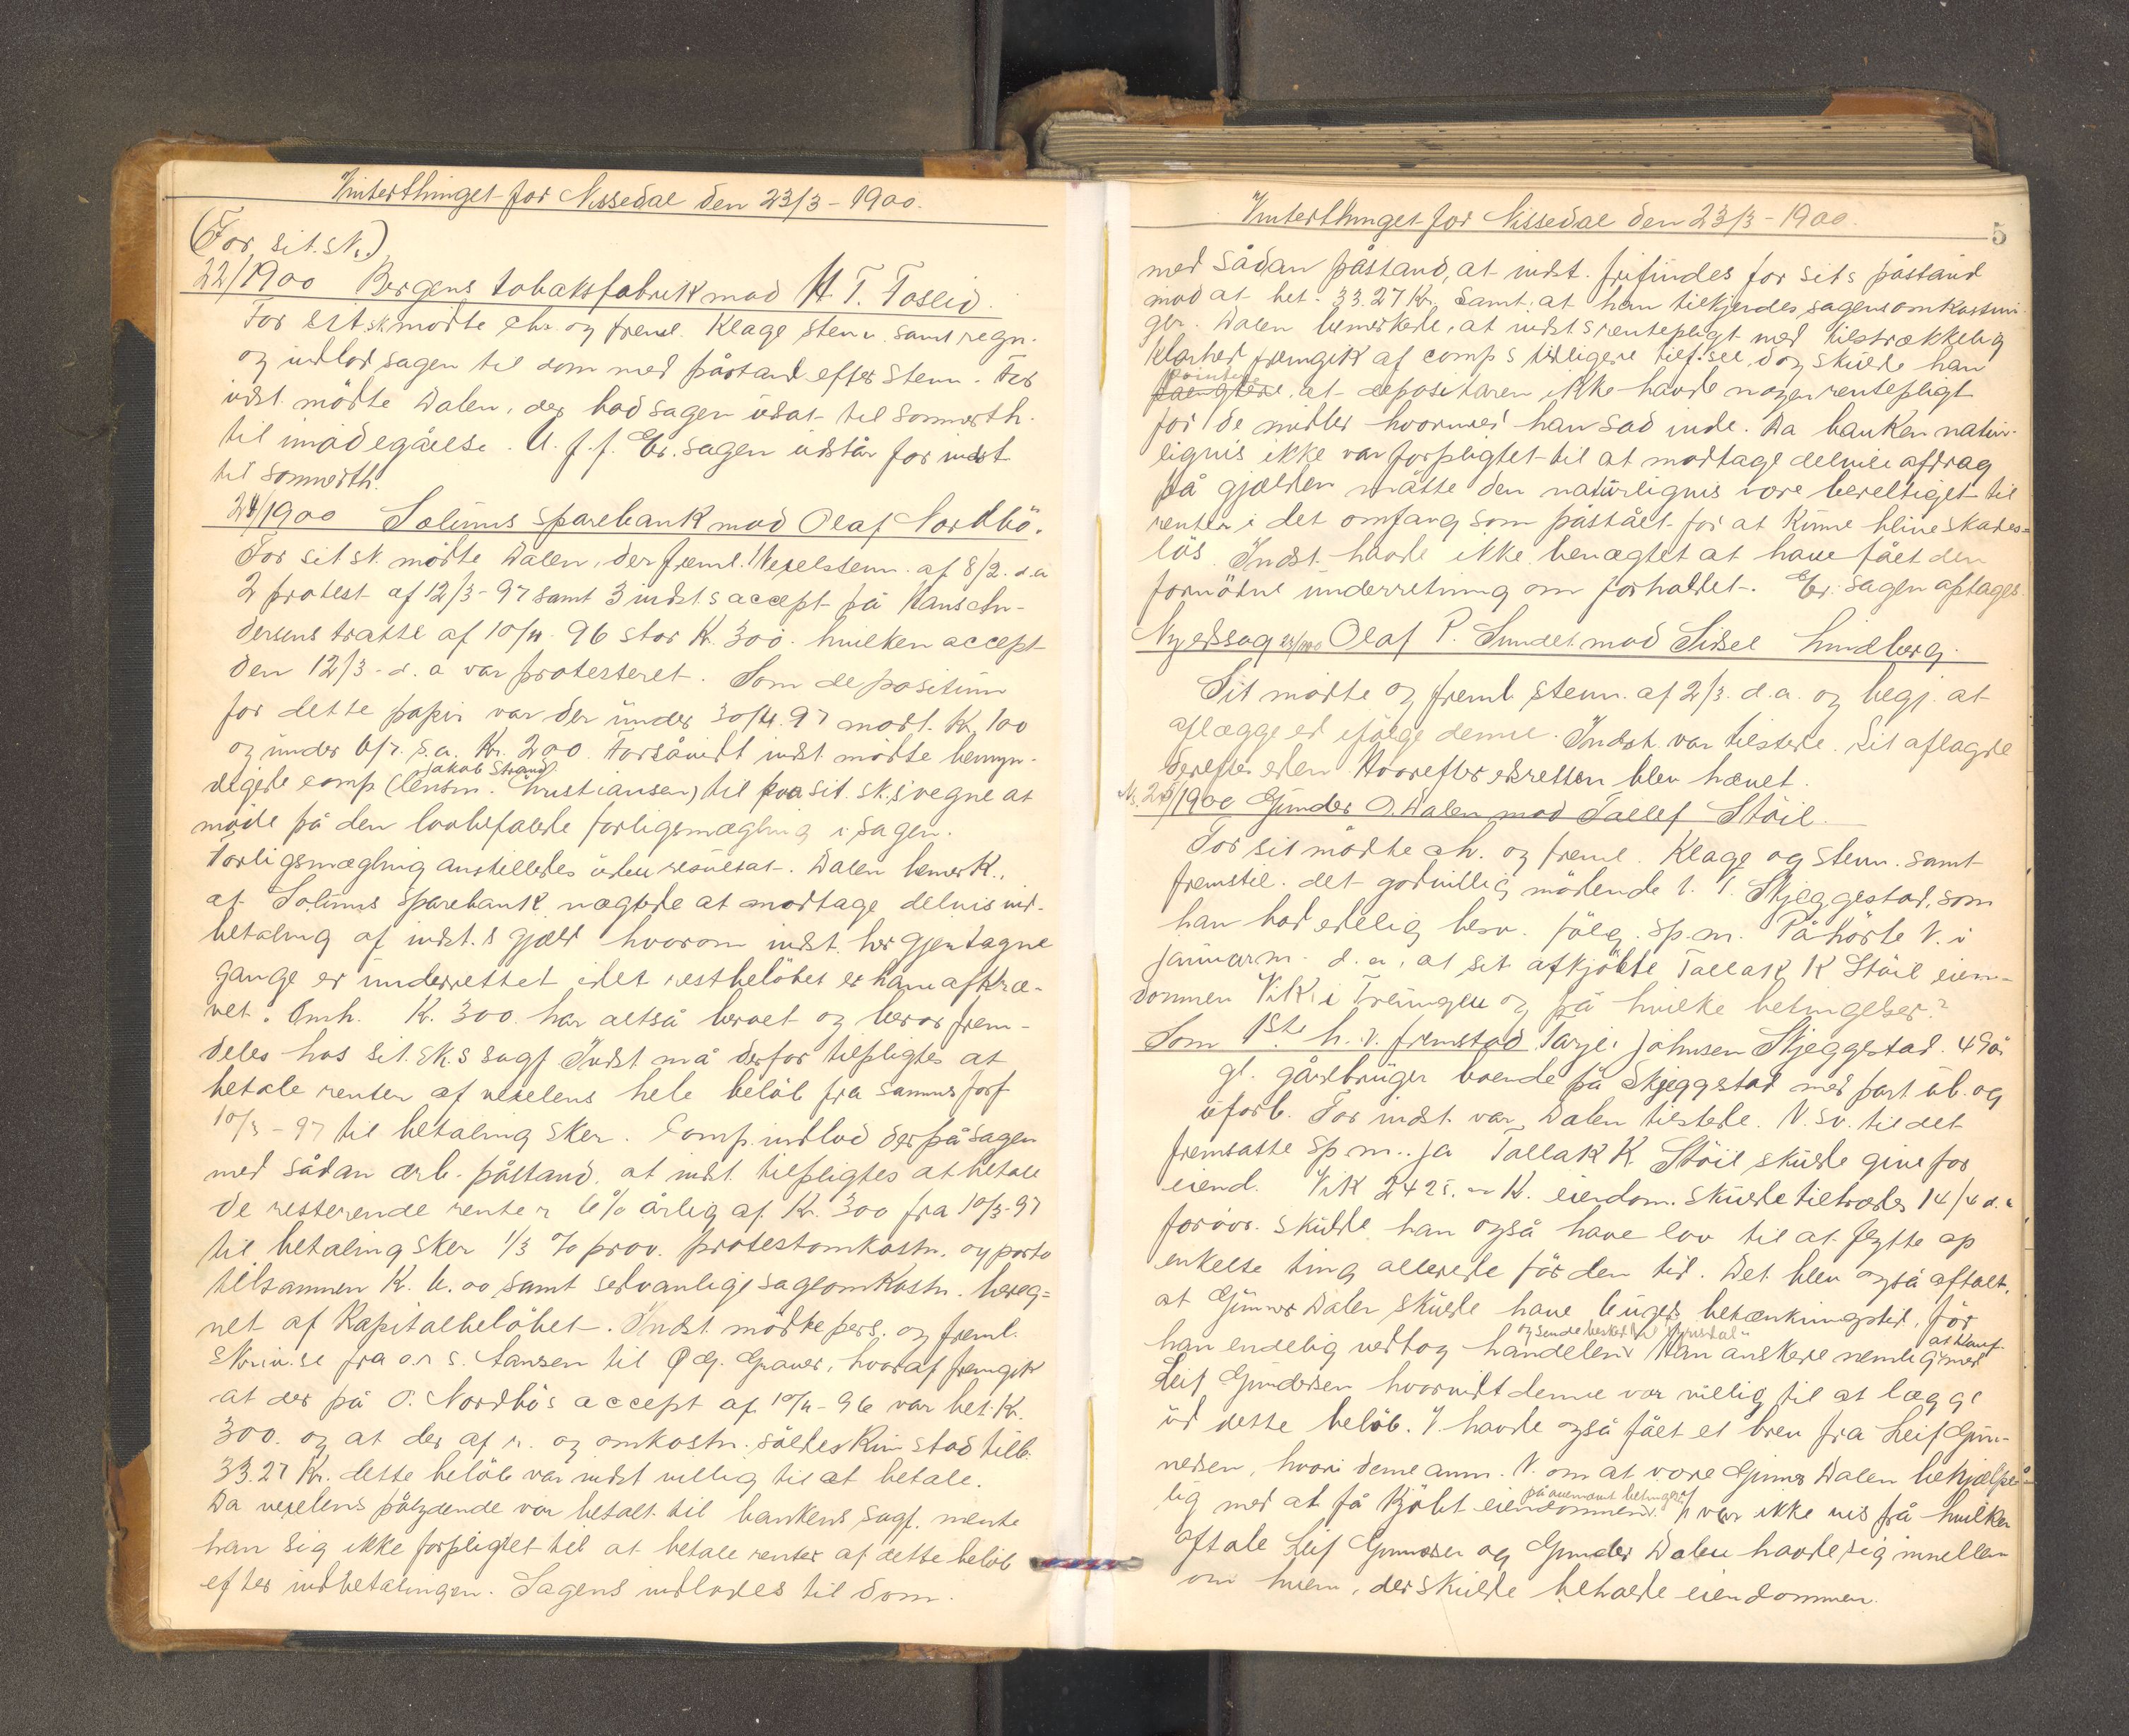 Vinterthinget for Nissedal den 23/3 - 1900.
(For sit. sk.)
22/1900 Bergens tobaksfabrik mod H. T. Foslid.
For sit. sk. mødte Chr. og freml. Klage stevn. samt regn.
og indlod sagen til dom med påstand efter stevn. For
indst. mødte Dalen, der bad sagen udsat til sommerth.
til imødegåelse. U. f. f. Er. sagen udstår for indst.
til sommerth.
24/1900 Solums sparebank mod Olaf Nordbö.
For sit sk. mødte Dalen, der freml. 1 Vexelstevn. af 8/2. d.a
2 protest af 12/3 - 97 samt 3 indst.s accept på Hans An-
dersens tratte af 10/11. 96 stor Kr. 300. hvilken accept
den 12/3 - d. a var protesteret. Som depositum
for dette papir var der under 30/4. 97 modt. Kr. 100
og under 6/7. s.a. Kr. 200. Forsåvidt indst. mødte bemyn-
digede comp (lensm. Christiansen) til paa sit. sk.s vegne at
Jakob Strand
møde på den lovbefalede forligsmægling i sagen.
Forligsmægling anstilledes uden resultat. Dalen bemerk.,
at Solums Sparebank nægtede at modtage delvis ind-
betaling af indst.s gjæld hvorom indst. her gjentagne
gange er underrettet idet restbeløbet er ham afkræ-
vet. Omh. K. 300. har altså beroet og beror frem-
deles hos sit. sk.s sagf. Indst. må derfor tilpligtes at
betale renter af vexelens hele beløb fra sammes forf
10/3 - 97 til betaling sker. Comp. indlod derpå sagen
med sådan ærb. påstand, at indst. tilpligtes at betale
de resterende renter 6% årlig af Kr. 300 fra 10/3-97
til betaling sker 1/3 % prov. protestomkostn. og porto
tilsammen K. 6.00 samt sedvanlige sagsomkostn. bereg=
net af Kapitalbeløbet. Indst. mødte pers. og freml.
Skriv.se fra o.r.s. Hansen til Ø G. Graver, hvoraf fremgik
at der på O. Nordbös accept af 10/11 - 96 var bet. Kr.
300. og at der af r. og omkostn. således kun stod tilb.
33.27 Kr. dette beløb var indst. villig til at betale.
Da vexelens pålydende var betalt til bankens sagf. mente
han sig ikke forpligtet til at betale renter af dette beløb
efter indbetalingen. Sagens indlodes til dom.
Vinterthinget for Nissedal den 23/3 - 1900.
5
med sådan påstand, at indst. frifindes for sit.s påstand
mod at bet. 33.27 Kr. samt at han tilkjendes sagens omkostnin-
ger. Dalen bemerkede, at indst.s rentepligt med tilstrækkelig
klarhed fremgik af comp s tidligere tilf.sel dog skulde han
pointere, at depositaren ikke havde nogen rentepligt
for de midler hvormed han sad inde. Da banken natur-
ligvis ikke var forpligtet til at modtage delvise afdrag
på gjælden måtte den naturligvis være berettiget til
renter i det omfang som påstået for at kunne blive skades=
løs. Indst. havde ikke benægtet at have fået den
fornødne underretning om forholdet. Er. Sagen optages.
Ny edssag 23/1900 Olaf P. Sundet mod Sidsel Lindberg.
Sit mødte og freml. stevn. af 2/3. d.a. og begj. at
aflægge ed ifølge denne. Indst. var tilstede. Sit aflagde
derefter eden. Hvorefter edsretten blev hævet.
No. 25/1900 Gunder O. Dalen mod Tallef Stöil.
For sit mødte Ch. og freml. Klage og stevn. samt
fremstil. det godvillig mödende 1. V. Skjeggestad, som
han bad edelig besv. følg. sp.m. Påhørte V. i
januarm. d.a, at sit afkjöbte Tallak K Stöil eien-
dommen Vik i Treungen og på hvilke betingelser?
Som 1ste h. v. fremstod Tarje Johnsen Skjeggestad. 49 år
gl. gårdbruger boende på Skjeggstad med part ub. og
uforb. For indst. var Dalen tilstede. V. sv. til det
fremsatte sp.m.: ja Tallak K. Stöil skulde give for
eiend. Vik 2425. - K. eiendom. skulde tiltrædes 14/4 d.a
forøvr. skulde han også have lov til at flytte op
enkelte ting allerede för den tid. Det blev også aftalt,
at Gunner Dalen skulde have 6 uges betænkningstid, för
han endelig vedtog handelen. Han ønskede nemlig med
og sende besked til Nyrisdal
Leif Gundersen hvorvidt denne var villig til at lægge
ud dette beløb. V. havde også fået et brev fra Leif Gun-
nersen, hvori denne anm. V. om at være Gunner Dalen behjælpe-
lig med at få kjöbt eiendommen. V var ikke vis på hvilken
på anmeldt betingelse
aftale Leif Gunnersen og Gunder Dalen havde sig imellem
om hvem, der skulde beholde eiendommen.